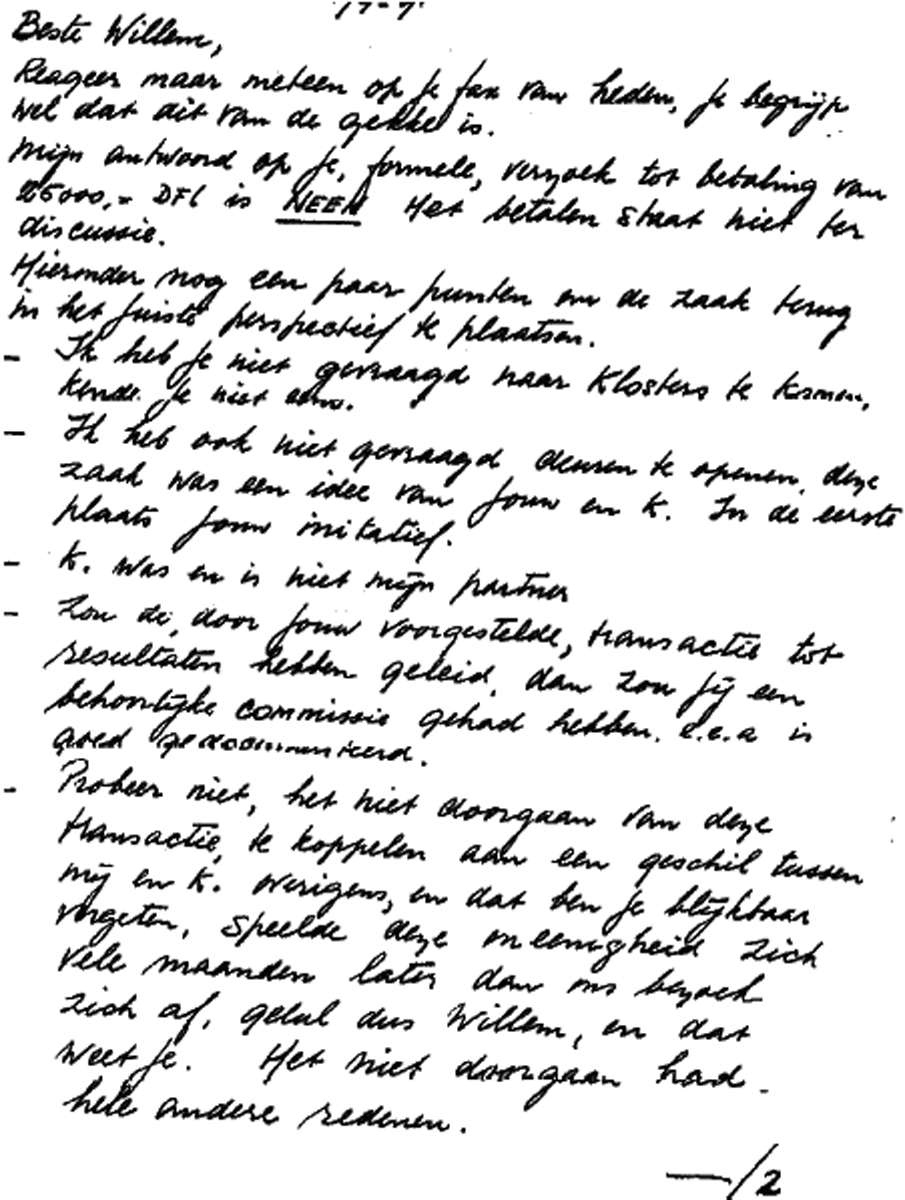 Beste Willem,
Reageer maar meteen op je fax van heden, je begrijp
wel dat dit van de gekke is.
Mijn antwoord op je, formele, verzoek tot betaling van
25000,= DFL is NEEN Het betalen staat niet ter
discussie.
Hieronder nog een paar punten om de zaak terug
in het juiste perspectief te plaatsen.
- Ik heb je niet gevraagd naar Klosters te komen,
kende je niet eens.
- Ik heb ook niet gevraagd deuren te openen, deze
zaak was een idee van jouw en K. In de eerste
plaats jouw initiatief.
- K. was en is niet mijn partner
- Zou de, door jouw voorgestelde, transactie tot
resultaten hebben geleid, dan zou jij een
behoorlijke commissie gehad hebben. e.e.a is
goed gedocumenteerd.
- Probeer niet, het niet doorgaan van deze
transactie, te koppelen aan een geschil tussen
mij en K. overigens, en dat ben je blijkbaar
vergeten, speelde deze oneenigheid zich
vele maanden later dan ons bezoek
zich af, gelul dus Willem, en dat
weet je. Het niet doorgaan had
hele andere redenen.
—/2